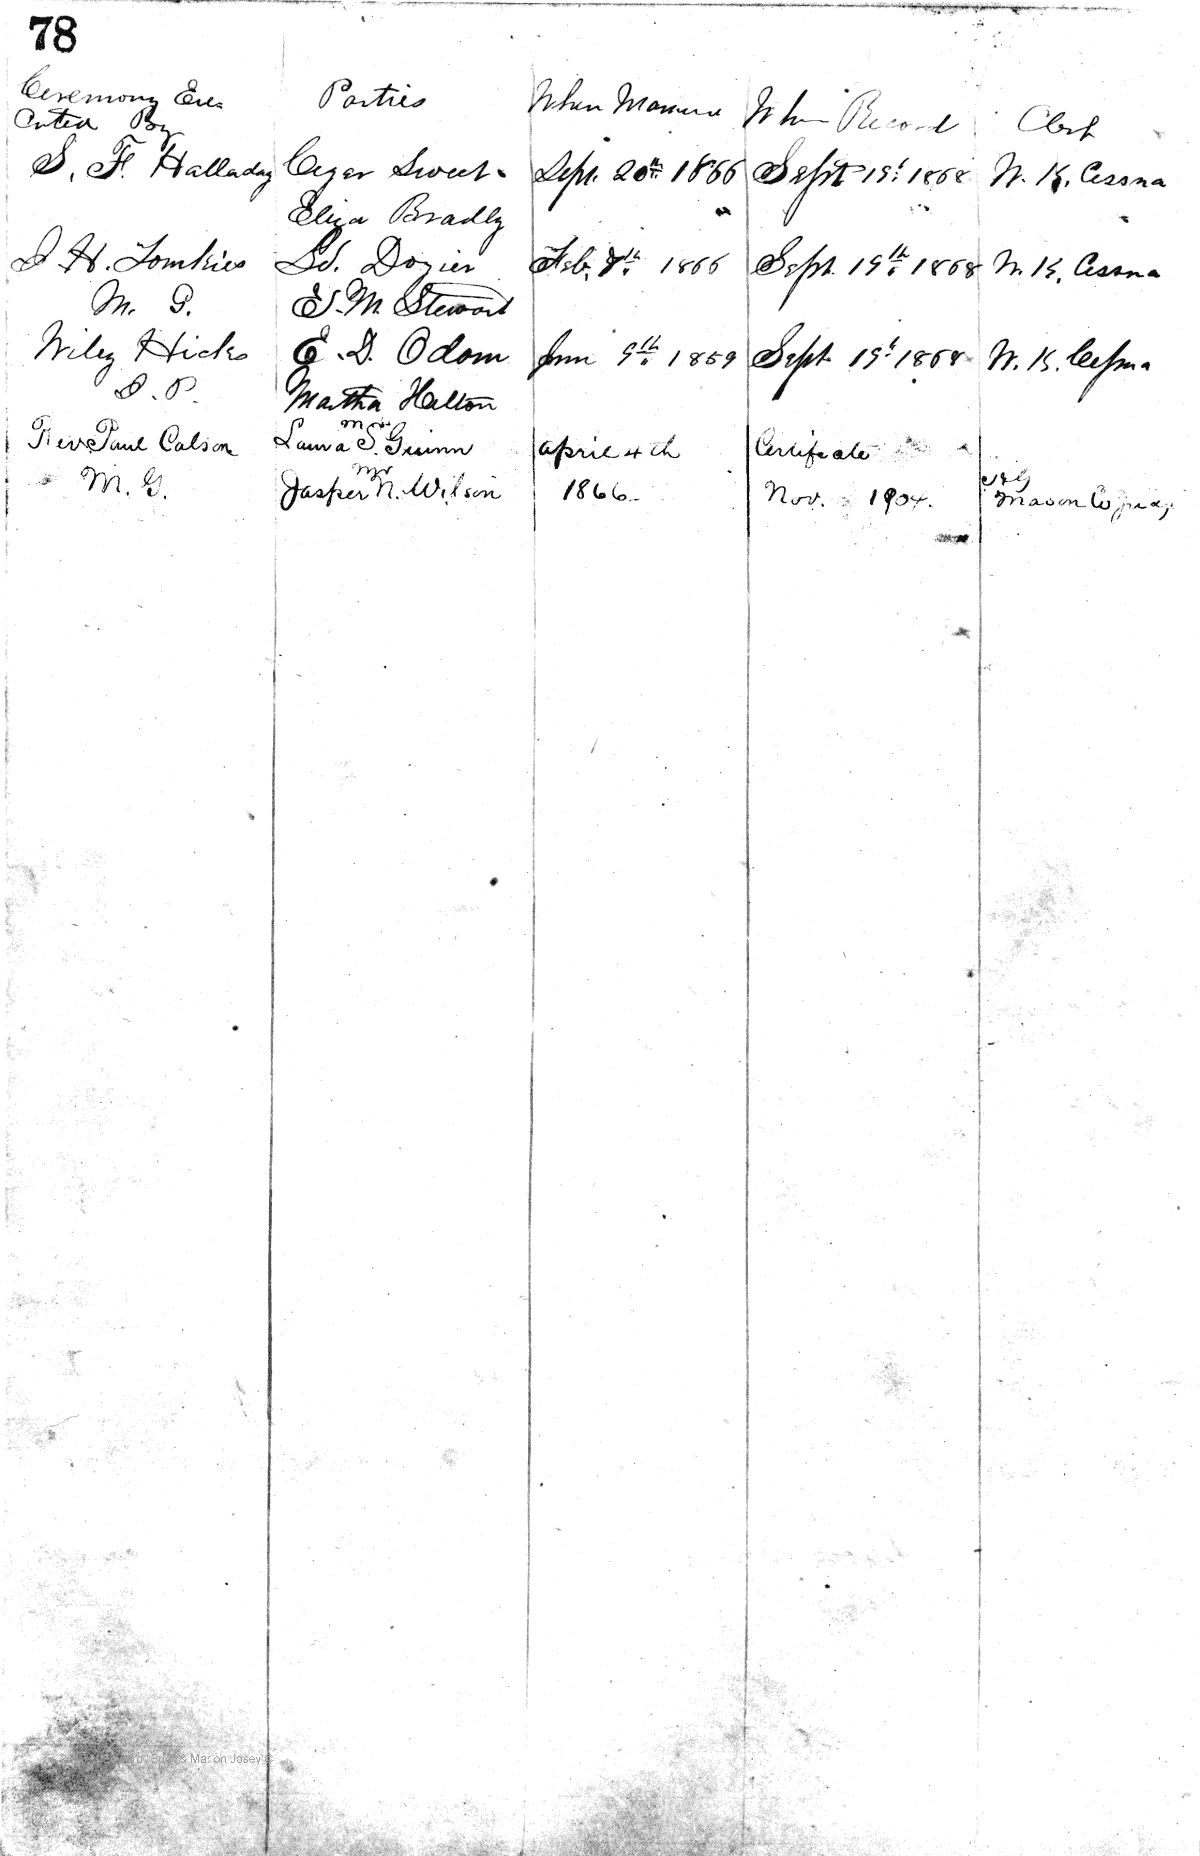 78
Ceremony Exe= Parties When Married When Record Clerk
cuted By
S. F. Halladay Cezar Sweet. Sept. 20th 1866 Sept 19t 1868 W. K. Cessna
Eliza Bradly
J. H. Tomkies Ed. Dozier Feb. 8th 1866 Sept. 19th 1868 W. K. Cessna
M. G. E. M. Stewart
Wiley Hicks E. D. Odom 9th 1859 Sept 19t 1868 W. K. Cessna
J. P. Martha Helton
Mrs
Rev Paul Colson Laura S. Guinn April 4th Certificate
Mr
M. G. Jasper N. Wilson 1866 Nov. 1904. Mason Co Judge
& Marion Josey